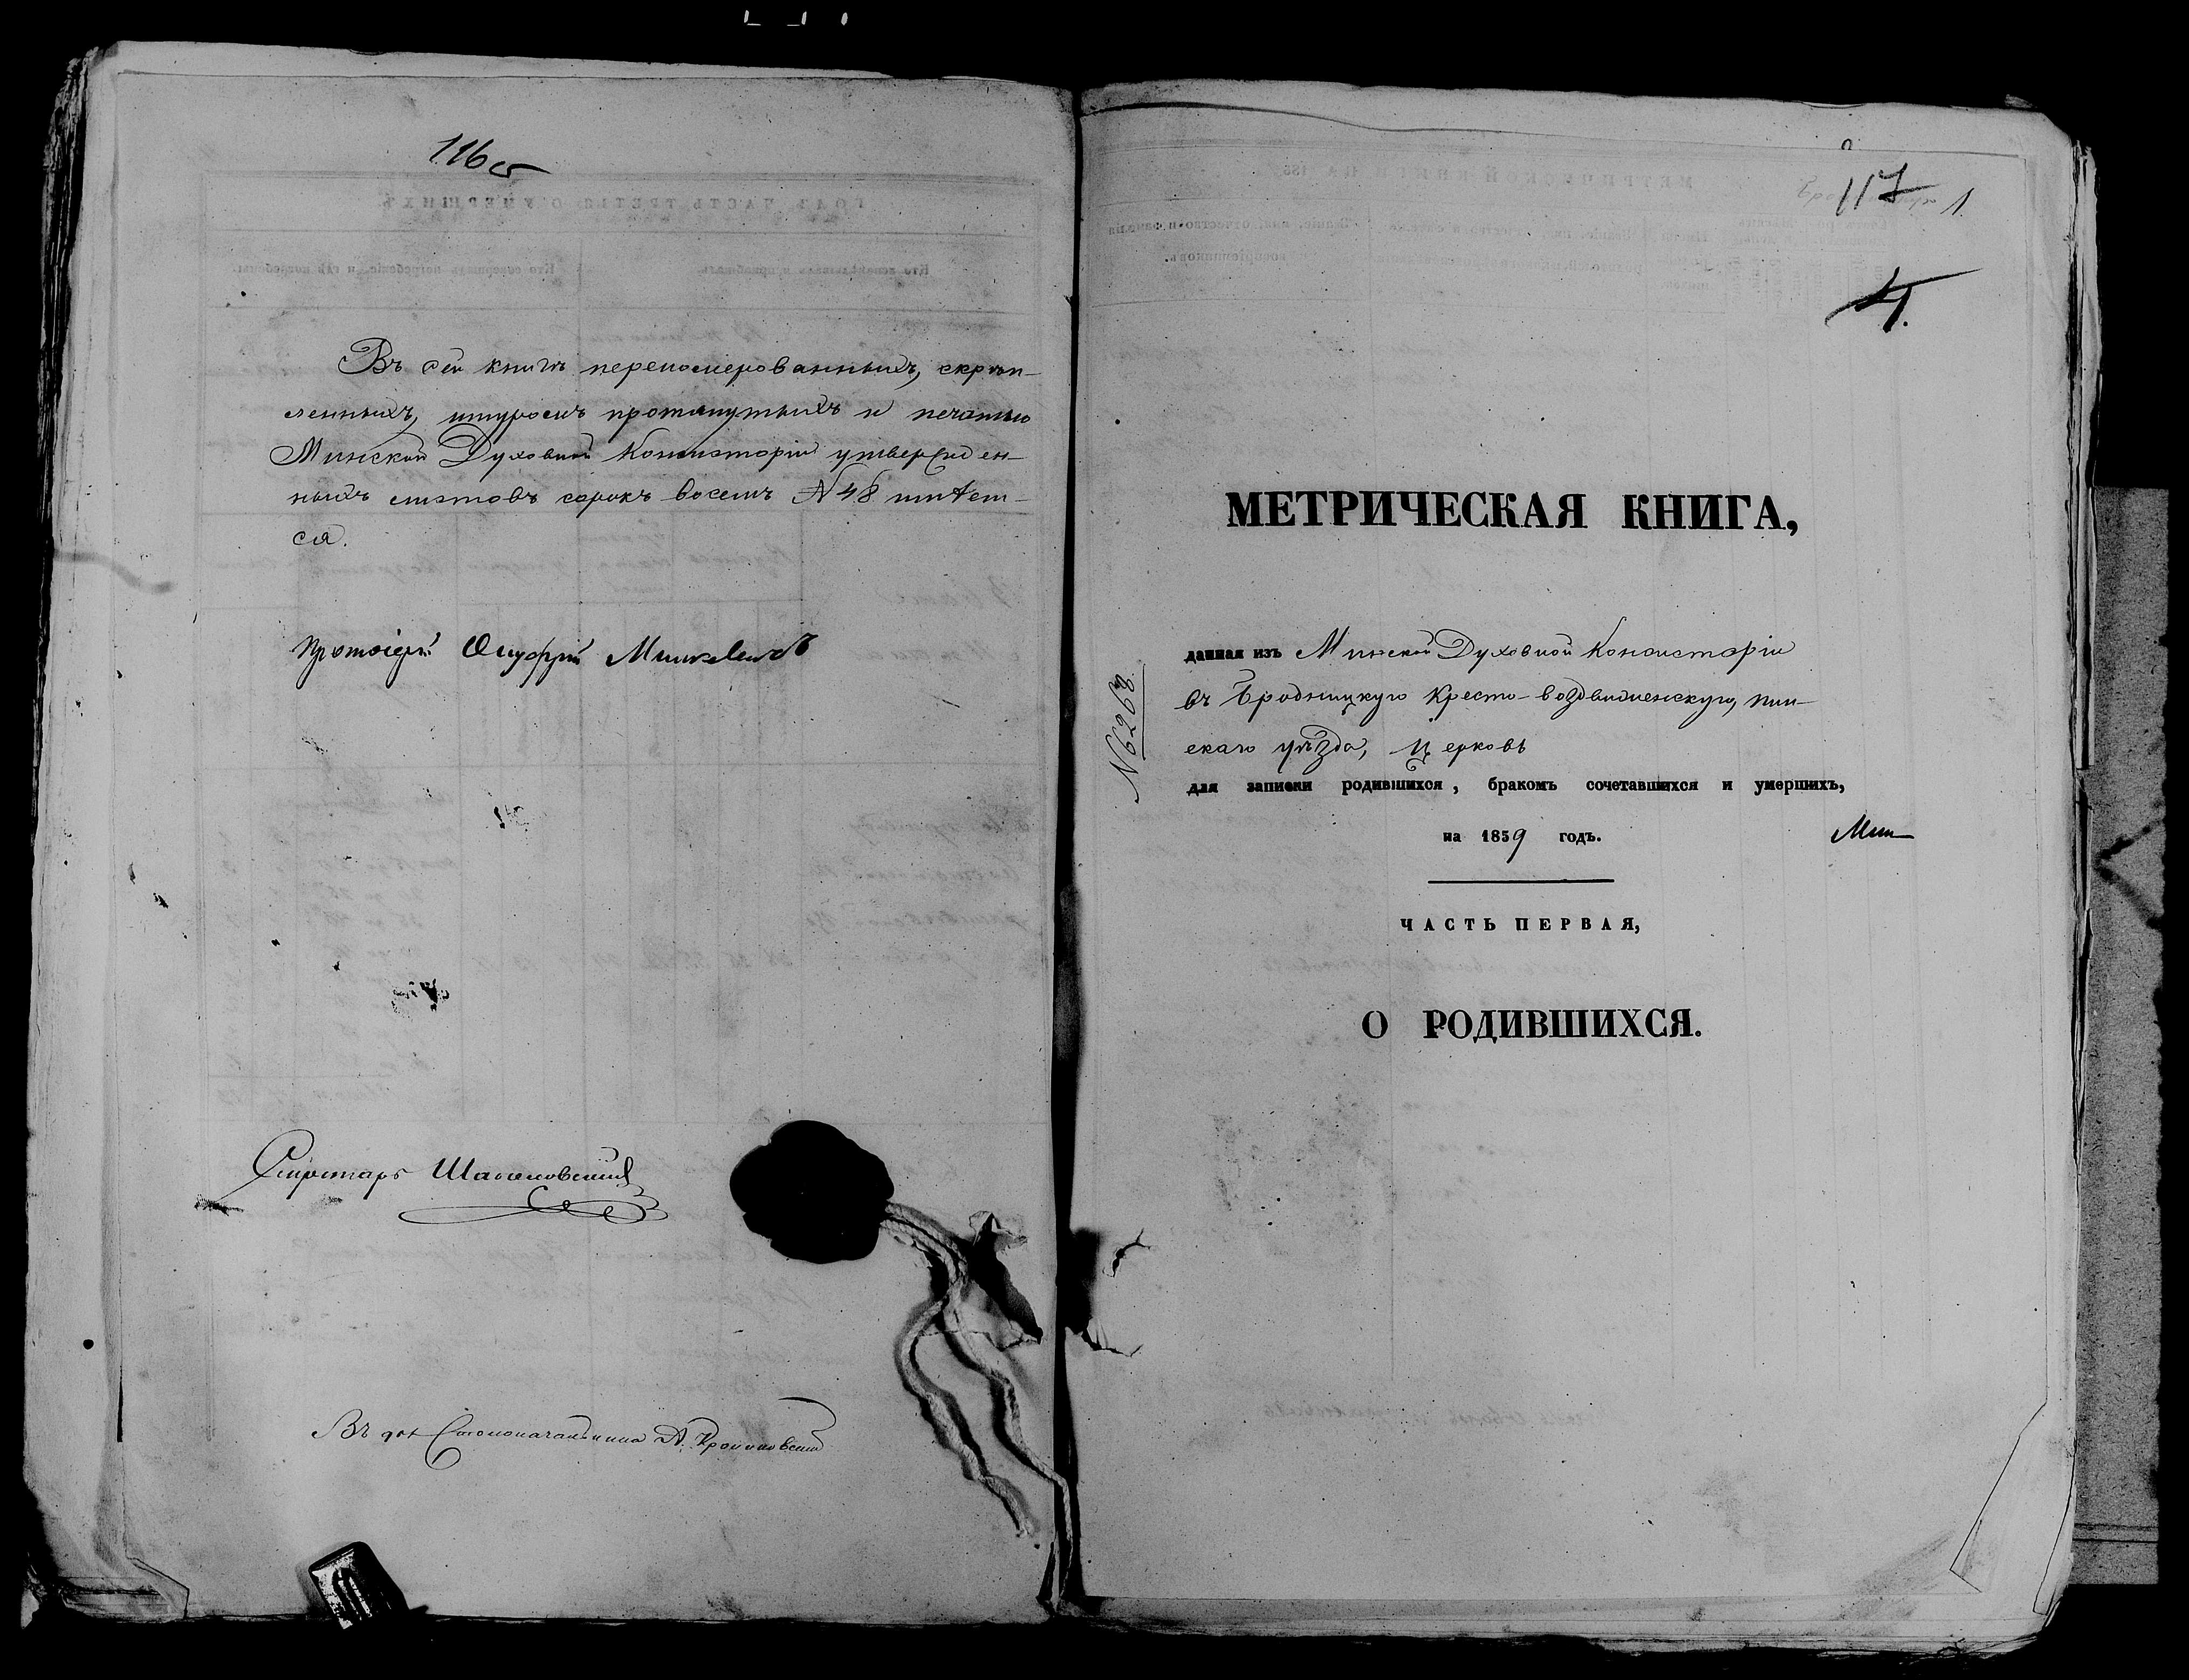 116об
Въ сей книгѣ перенумерованныхъ, скрѣп-
ленныхъ, шнуромъ протянутыхъ и печатью
Минской Духовной Консисторіи утвержден-
ныхъ листовъ сорокъ восемь N 48 имѣет-
ся.
Протоіерей Онуфрій
Секретарь
Въ дол. Столоначальника А.
117 1
4.
МЕТРИЧЕСКАЯ КНИГА,
данная изъ Минской Духовной Консисторіи
въ Бродницкую Кресто-воздвиженскую, Пин-
скаго уѣзда, церковь
для записки родившихся, бракомъ сочетавшихся и умершихъ,
на 1859 годъ.
N6268
ЧАСТЬ ПЕРВАЯ,
О РОДИВШИХСЯ.